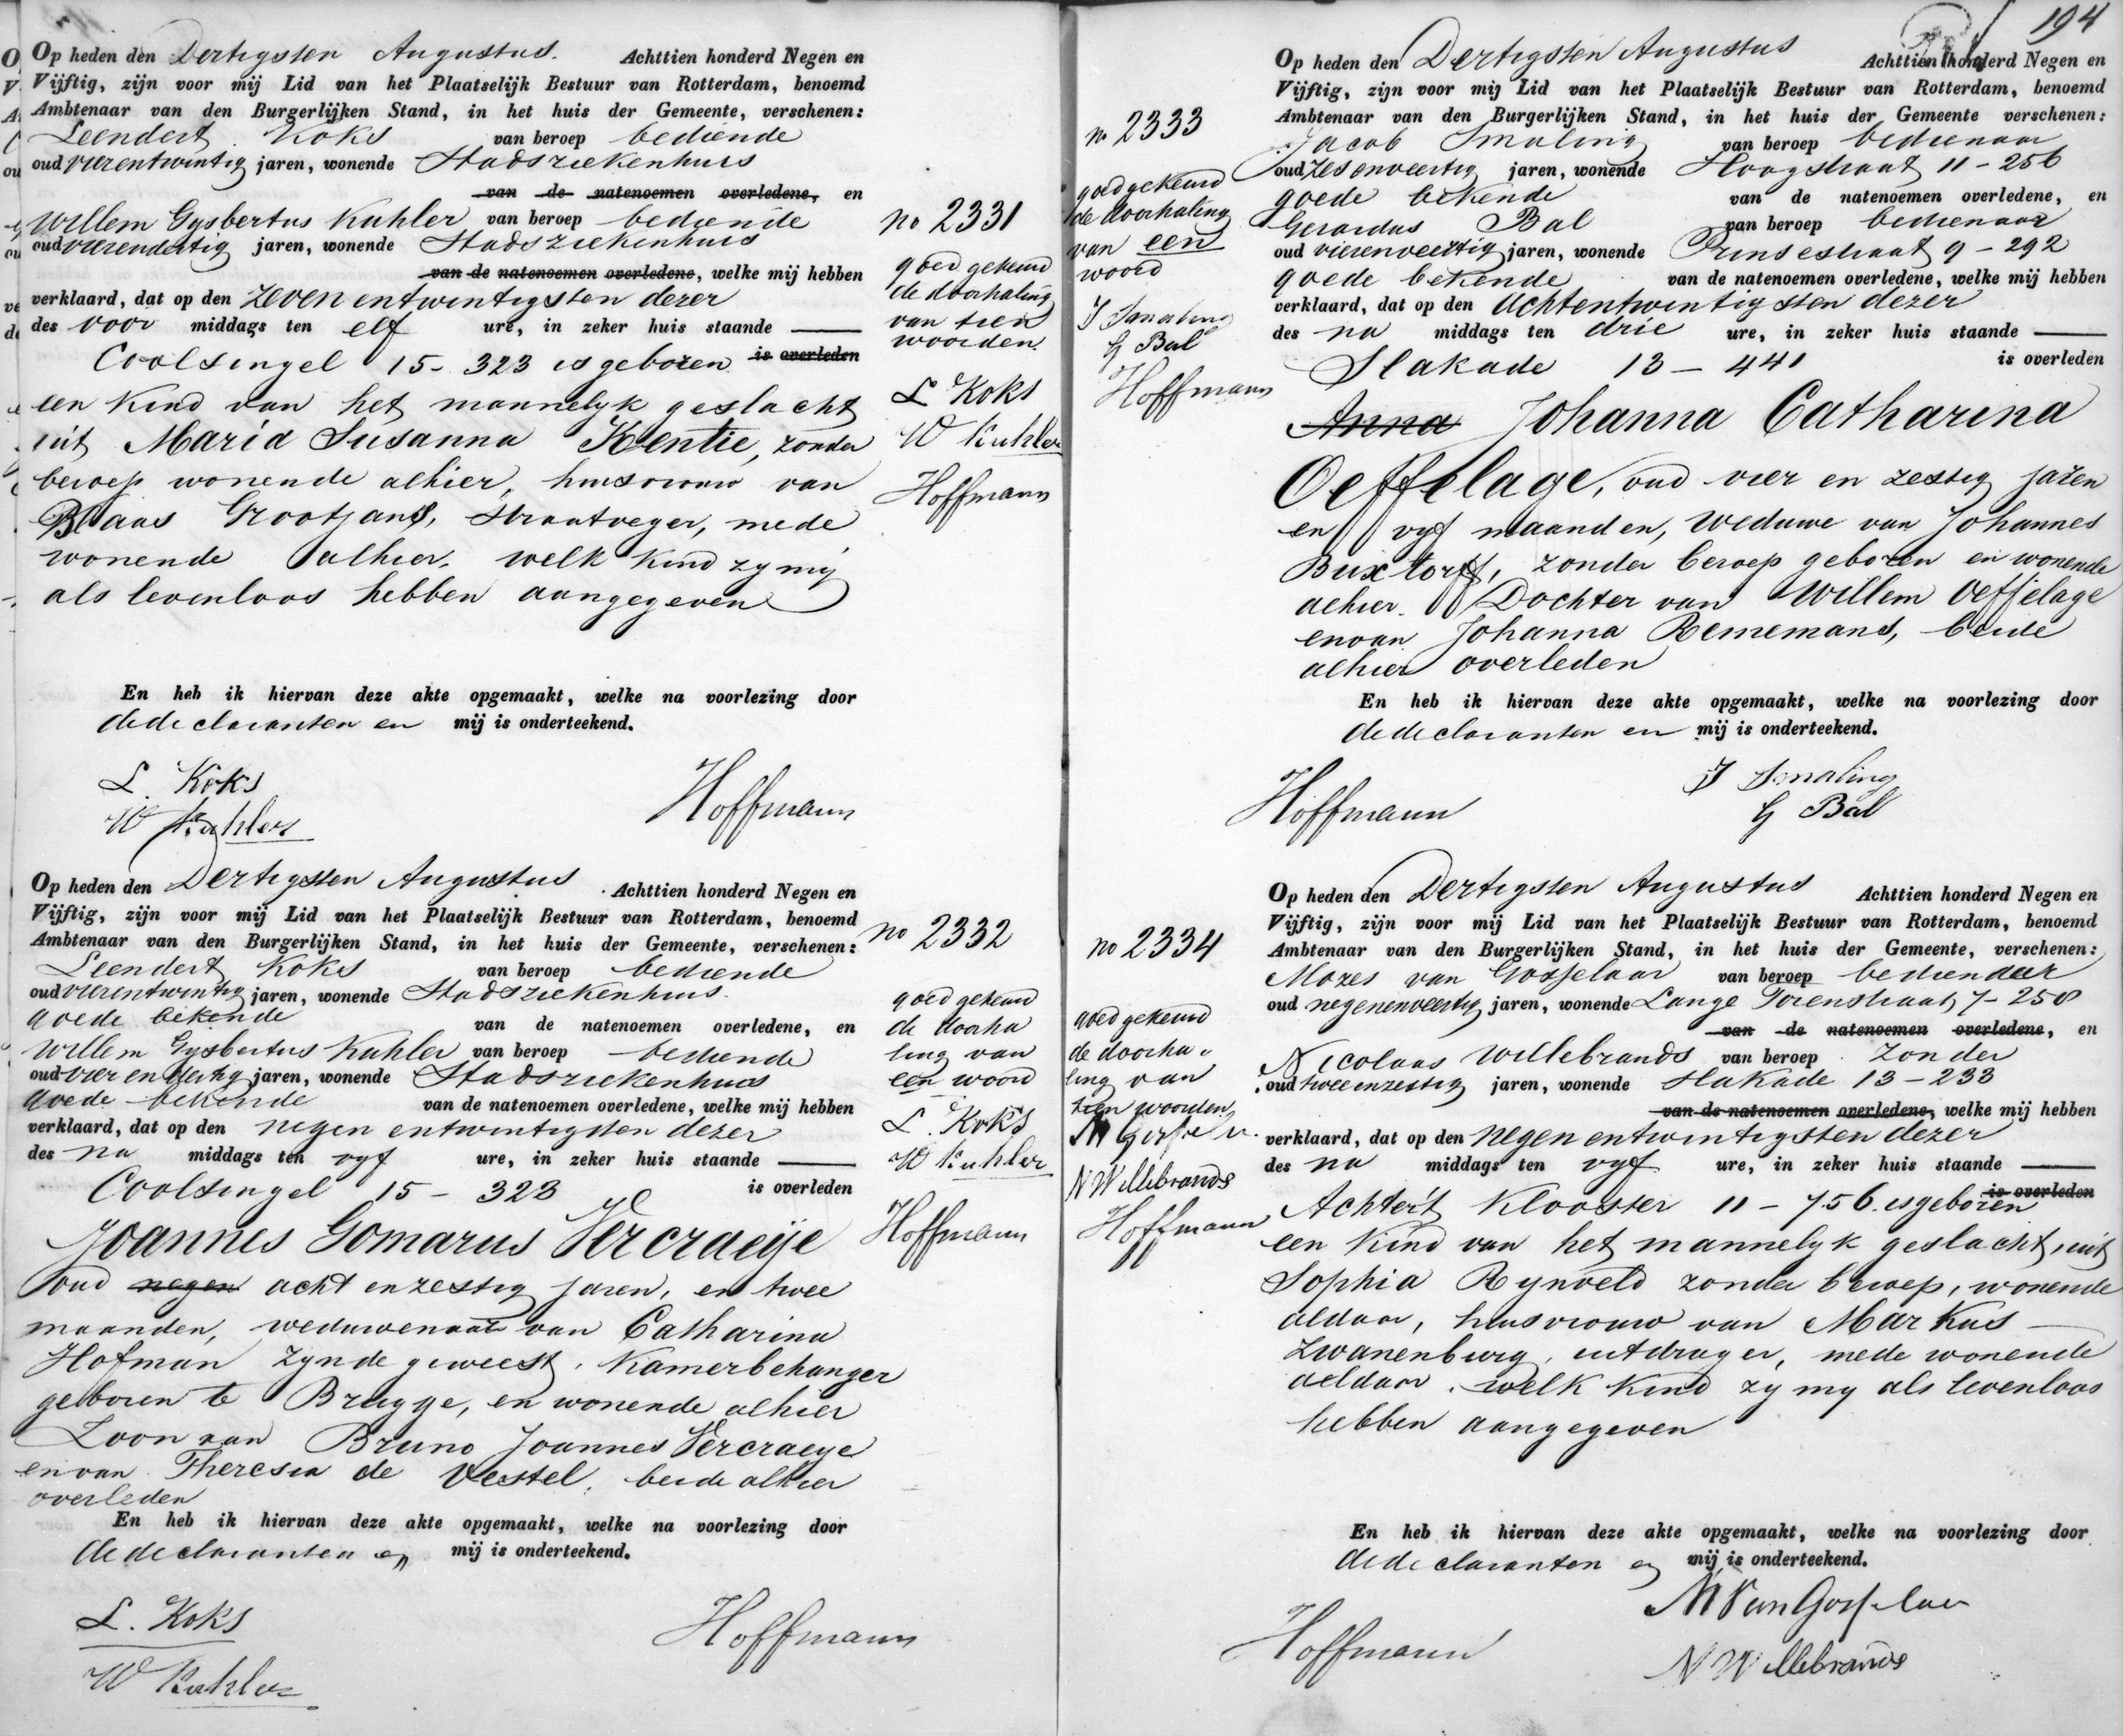 Op heden den Dertigsten Augustus. Achttien honderd Negen en
Vijftig, zijn voor mij Lid van het Plaatselijk Bestuur van Rotterdam, benoemd
Ambtenaar van den Burgerlijken Stand, in het huis der Gemeente, verschenen:
Leendert Koks van beroep bediende
oud vierentwintig jaren, wonende Stadsziekenhuis
van de natenoemen overledene, en
Willem Gysbertus Kuhler van beroep bediende
oud vierendertig jaren, wonende Stadsziekenhuis
van de natenoemen overledene, welke mij hebben
verklaard, dat op den zeven entwintigsten dezer
des voor middags ten elf ure, in zeker huis staande
Coolsingel 15 - 323 is geboren is overleden
een kind van het mannelyk geslacht
uit Maria Susanna Kentie, zonder
beroep wonende alhier, huisvrouw van
Blaas Grootjans, straatveger, mede
wonende alhier. welk kind zy mij
als levenloos hebben aangegeven
En heb ik hiervan deze akte opgemaakt, welke na voorlezing door
de declaranten en mij is onderteekend.
L. Koks
W Kuhler
Hoffmann
no 2331
goed gekeurd
de doorhaling
van tien
woorden.
L Koks
W Kuhler
Hoffmann
Op heden den Dertigsten Augustus Achttien honderd Negen en
Vijftig, zijn voor mij Lid van het Plaatselijk Bestuur van Rotterdam, benoemd
Ambtenaar van den Burgerlijken Stand, in het huis der Gemeente, verschenen:
Leendert Koks van beroep bediende
oud vierentwintig jaren, wonende Stadsziekenhuis.
goede bekende van de natenoemen overledene, en
Willem Gysbertus Kuhler van beroep bediende
oud vier en dertig jaren, wonende Stadsziekenhuis
goede bekende van de natenoemen overledene, welke mij hebben
verklaard, dat op den negen entwintigsten dezer
des na middags ten vyf ure, in zeker huis staande
Coolsingel 15 - 323 is overleden
Joannes Gomarus Vercraeije
oud negen acht en zestig jaren, en twee
maanden, weduwenaar van Catharina
Hofman zynde geweest, Kamerbehanger
geboren te Brugge, en wonende alhier
Zoon van Bruno Joannes Vercraeye
en van Theresia de Vestel, beide alhier
overleden
En heb ik hiervan deze akte opgemaakt, welke na voorlezing door
de declaranten en mij is onderteekend.
L. Koks
W Kuhler
Hoffmann
no 2332
goed gekeurd
de doorha
ling van
een woord
L. Koks
W Kuhler
Hoffmann
194
no 2333
goed gekeurd
de doorhaling
van een
woord
J Smaling
G Bal
Hoffmann
Op heden den Dertigsten Augustus Achttien honderd Negen en
Vijftig, zijn voor mij Lid van het Plaatselijk Bestuur van Rotterdam, benoemd
Ambtenaar van den Burgerlijken Stand, in het huis der Gemeente verschenen:
Jacob Smaling van beroep bedienaar
oud zesenveertig jaren, wonende Hoogstraat 11 - 256
goede bekende van de natenoemen overledene, en
Gerardus Bal van beroep bedienaar
oud vierenveertig jaren, wonende Prinsestraat 9 - 292
goede bekende van de natenoemen overledene, welke mij hebben
verklaard, dat op den Achtentwintigsten dezer
des na middags ten drie ure, in zeker huis staande
Slakade 13 - 441 is overleden
Anna Johanna Catharina
Oeffelage, oud vier en zestig jaren
en vyf maanden, weduwe van Johannes
Buxtorff, zonder beroep geboren en wonende
alhier. Dochter van Willem Oeffelage
en van Johanna Rememans, beide
alhier overleden
En heb ik hiervan deze akte opgemaakt, welke na voorlezing door
de declaranten en mij is onderteekend.
J Smaling
G Bal
Hoffmann
no 2334
goed gekeurd
de doorha
ling van
tien woorden
N Willebrands
Hoffmann
Op heden den Dertigsten Augustus Achttien honderd Negen en
Vijftig, zijn voor mij Lid van het Plaatselijk Bestuur van Rotterdam, benoemd
Ambtenaar van den Burgerlijken Stand, in het huis der Gemeente, verschenen:
Mozes van Gosselaar van beroep bedienaar
oud negenenveertig jaren, wonende Lange Torenstraat 7 - 258
van de natenoemen overledene, en
Nicolaas Willebrands van beroep zonder
oud tweeenzestig jaren, wonende Slakade 13 - 233
van de natenoemen overledene, welke mij hebben
verklaard, dat op den negen entwintigsten dezer
des na middags ten vyf ure, in zeker huis staande
Achter't Klooster 11 - 756. is geboren is overleden
een kind van het mannelyk geslacht, uit
Sophia Rynveld zonder beroep, wonende
aldaar, huisvrouw van Markus
Zwanenburg, uitdrager, mede wonende
aldaar. welk kind zy my als levenloos
hebben aangegeven
En heb ik hiervan deze akte opgemaakt, welke na voorlezing door
de declaranten en mij is onderteekend.
M Van Gosselaar
N Willebrands
Hoffmann